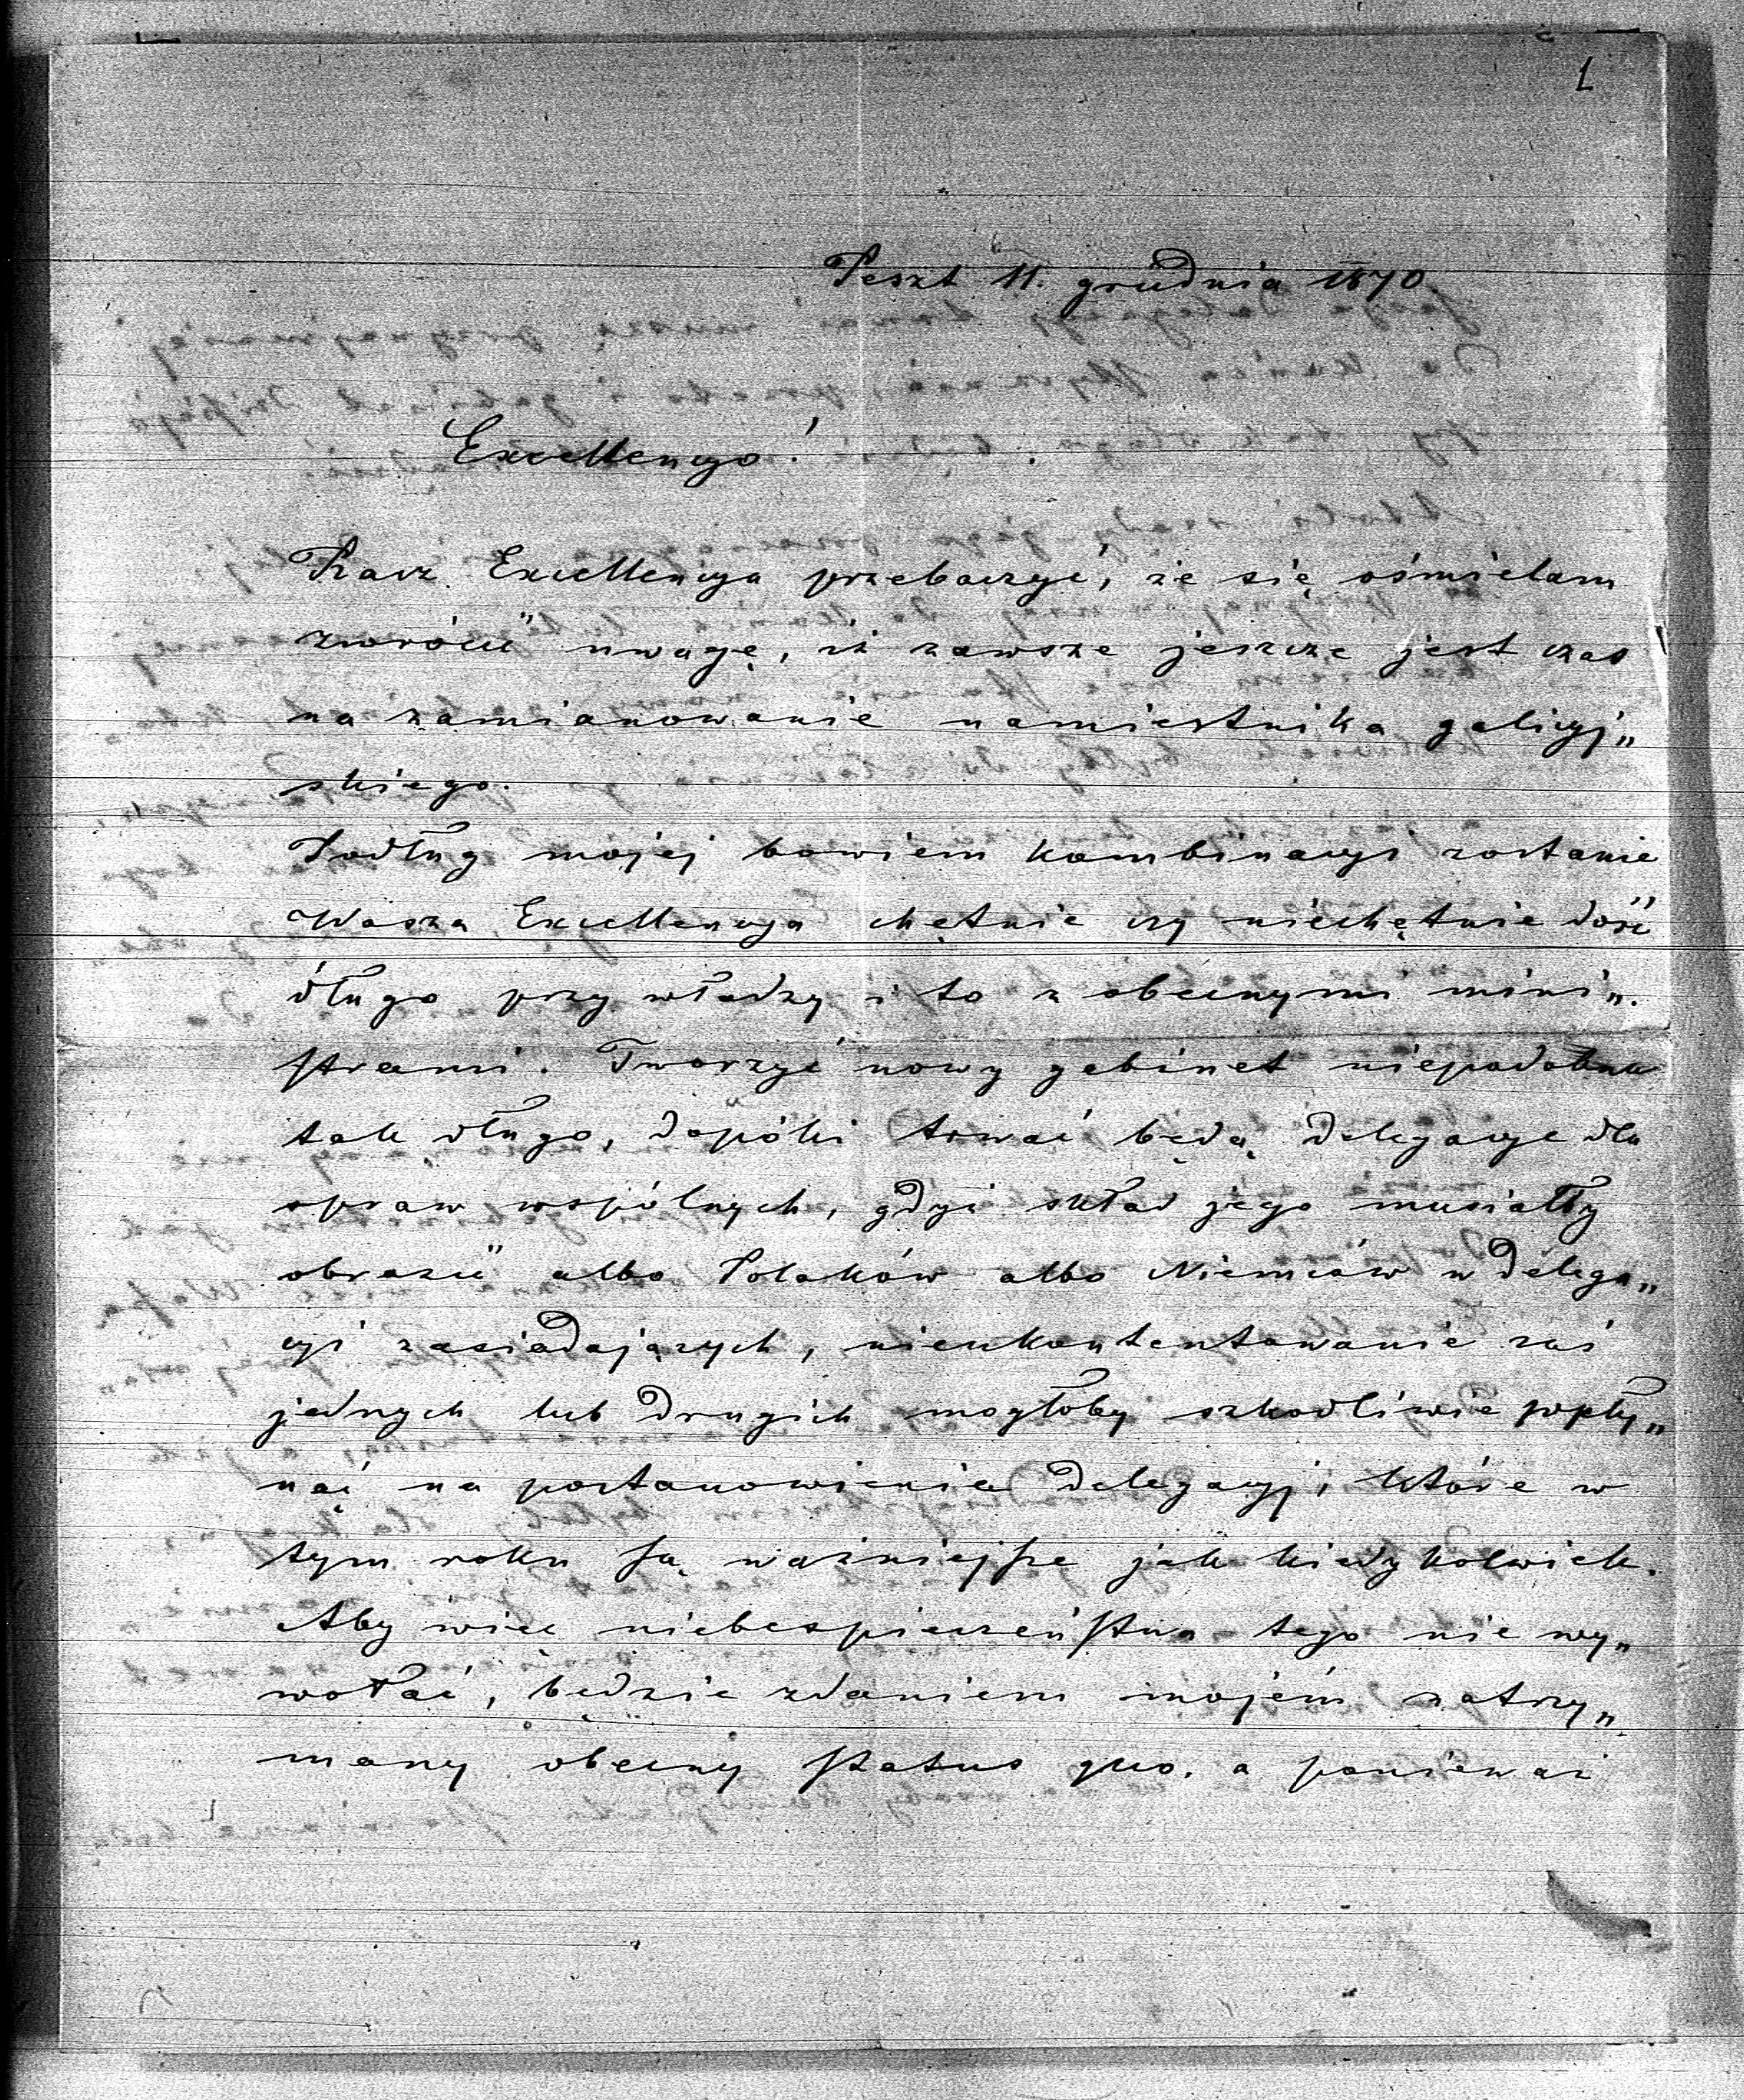 1
Peszt 11. grudnia 1870
Excellencyo!
Racz Excellencya przebaczyć, że się ośmielam
zwrócić uwagę, iż zawsze jeszcze jest czas
na zamianowanie namiestnika galicyj„
skiego.
Podług mojej bowiem kombinacyi zostanie
Wasza Excellencya chętnie czy niechętnie dość
długo przy władzy i to z obecnymi mini„
strami. Tworzyć nowy gabinet niepodobna
tak długo, dopóki trwać będą delegacye dla
spraw wspólnych, gdyż skład jego musiałby
obrazić albo Polaków albo Niemców w delega„
cyi zasiadających, nieukontentowanie zaś
jednych lub drugich mogłoby szkodliwie wpły„
nąć na postanowienia delegacyj, które w
tym roku są ważniejsze jak kiedykolwiek.
Aby więc niebezpieczeństwa tego nie wy„
wołać, będzie zdaniem mojém zatrzy„
many obecny status quo, a ponieważ